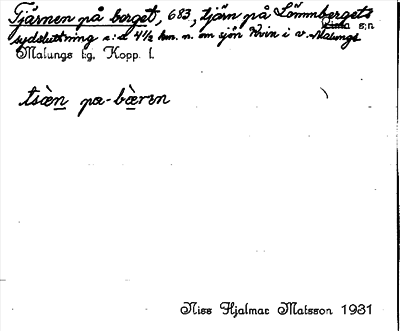 Tjärnen på berget, 683, tjärn på Lömmbergets
sydsluttning c:a 4½ km. n. om sjön Kvien i v. Malungs
Lima s:n
Malungs t:g, Kopp. l.
tsæ̀n pa-bæ̀ren
Niss Hjalmar Matsson 1931